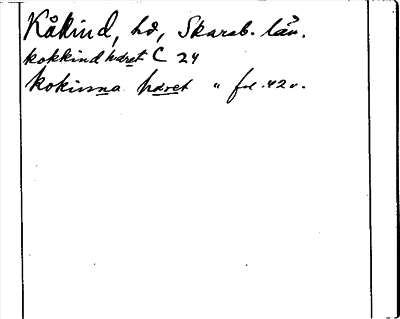 Kåkind, hd, Skarab. län.
kokkind häret C 24
kokinna häret " fol. 42 v.